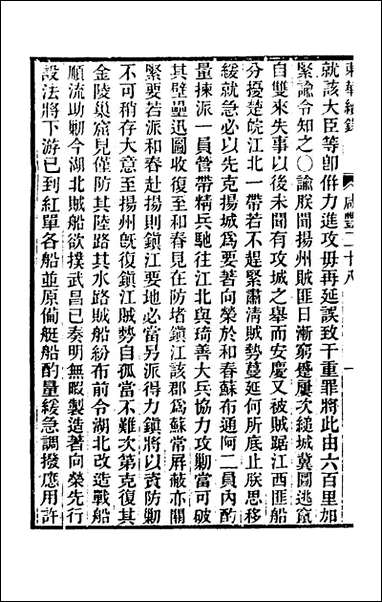 東華續錄　咸豐二十八　一
就該大臣等卽併力進攻毋再延誤致干重罪將此由六百里加
緊諭令知之〇諭朕聞揚州賊匪日漸窮蹙屢次縋城冀圖逃竄
自雙來失事以後未聞有攻城之舉而安慶又被賊踞江西匪船
分擾楚皖江北一帶若不趕緊肅淸賊勢蔓延何所底止朕思移
緩就急必以先克揚城爲要著向榮於和春蘇布通阿二員內酌
量揀派一員管帶精兵馳往江北與琦善大兵協力攻勦當可破
其壁壘迅圖收復至和春見在防堵鎭江該郡爲蘇常屛蔽亦關
緊要若派和春赴揚則鎭江要地必當另派得力鎭將以資防勦
不可稍存大意至揚州旣復鎭江賊勢自孤當不難次第克復其
金陵巢窟見僅防其陸路其水路賊船紛布前令湖北改造戰船
順流助勦今湖北賊船欲撲武昌已奏明無暇製造著向榮先行
設法將下游已到紅單各船並原僱艇船酌量緩急調撥應用許